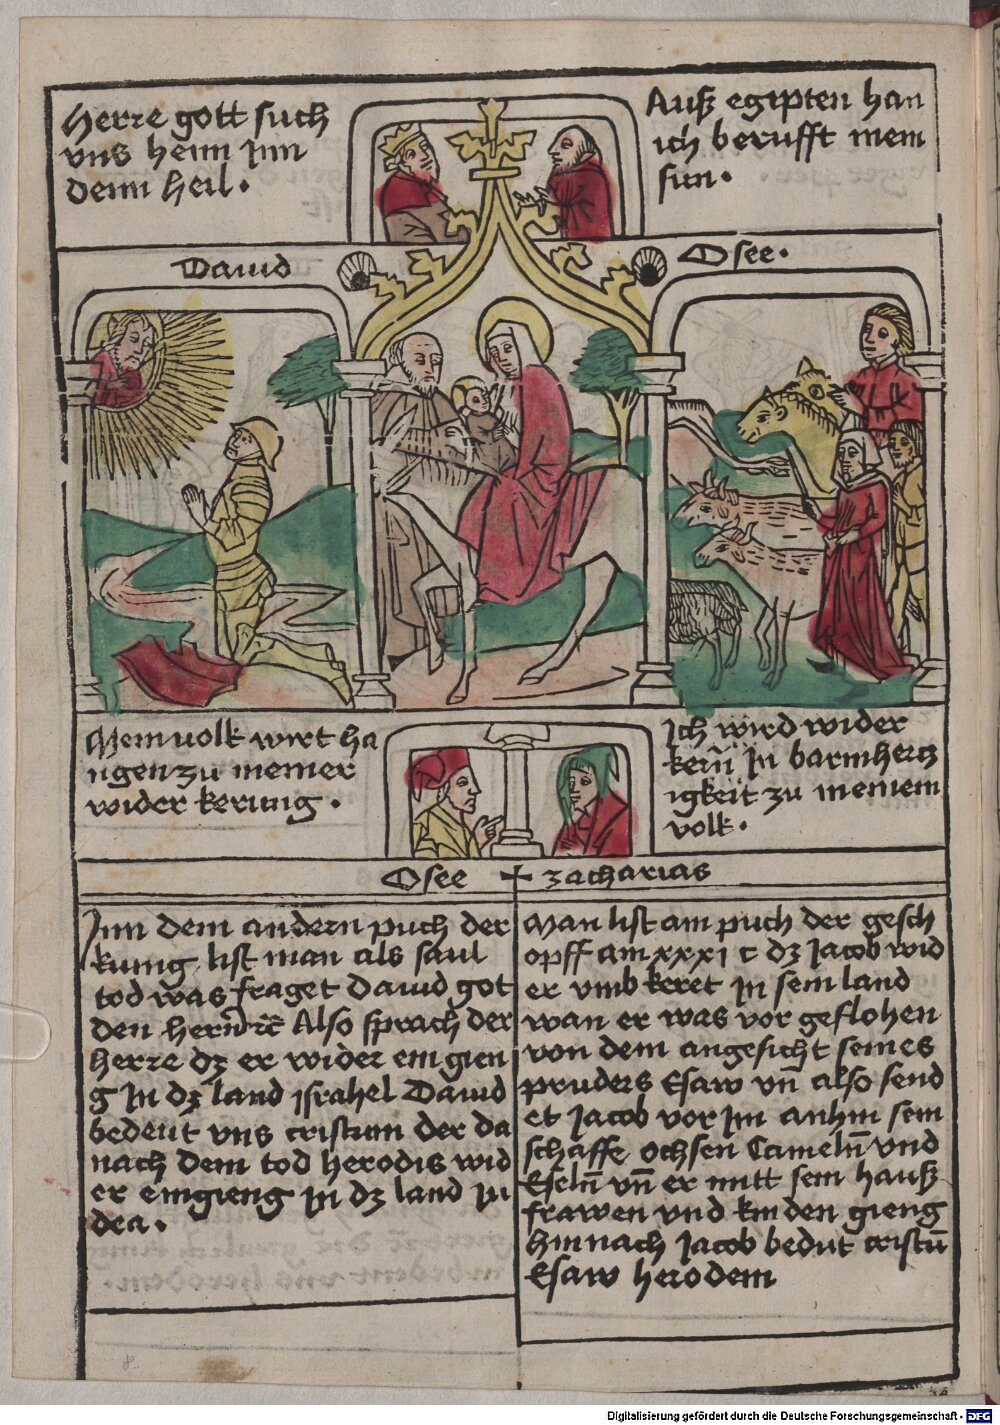 Herre gott such
vns heim Inn
deim heil .
Auß egipten han
ich berufft mein
sun .
Dauid
Osee .
Mein volk wirt ha
ngen zu meiner
wider kerung .
Ich wird wider
kern̄ In barmhercz
igkeit zu meinem
volk .
Osee
zacharias
Inn dem andern puch der
kunig list man als saul
tod was fraget Dauid got
den hern̄ rc̄ Also sprach der
herre dz er wider ein gien
g In dz land israhel Dauid
bedeut vns cristum der da
nach dem tod herodis wid
er eingieng in dz land iu
dea .
Man list am puch der gesch
opff am xxxi c dz Jacob wid
er vmb keret in sein land
wan er was vor geflohen
von dem angesicht seines
pruders Esaw vn̄ also send
et Jacob vor im anhin sein
schaffe ochsen Cameln̄ vnd
Eseln̄ vn̄ er mitt sein hauß
frawen vnd kinden gieng
hin nach Jacob bedut cristū
Esaw herodem
Digitalisierung gefördert durch die Deutsche Forschungsgemeinschaft - DFG